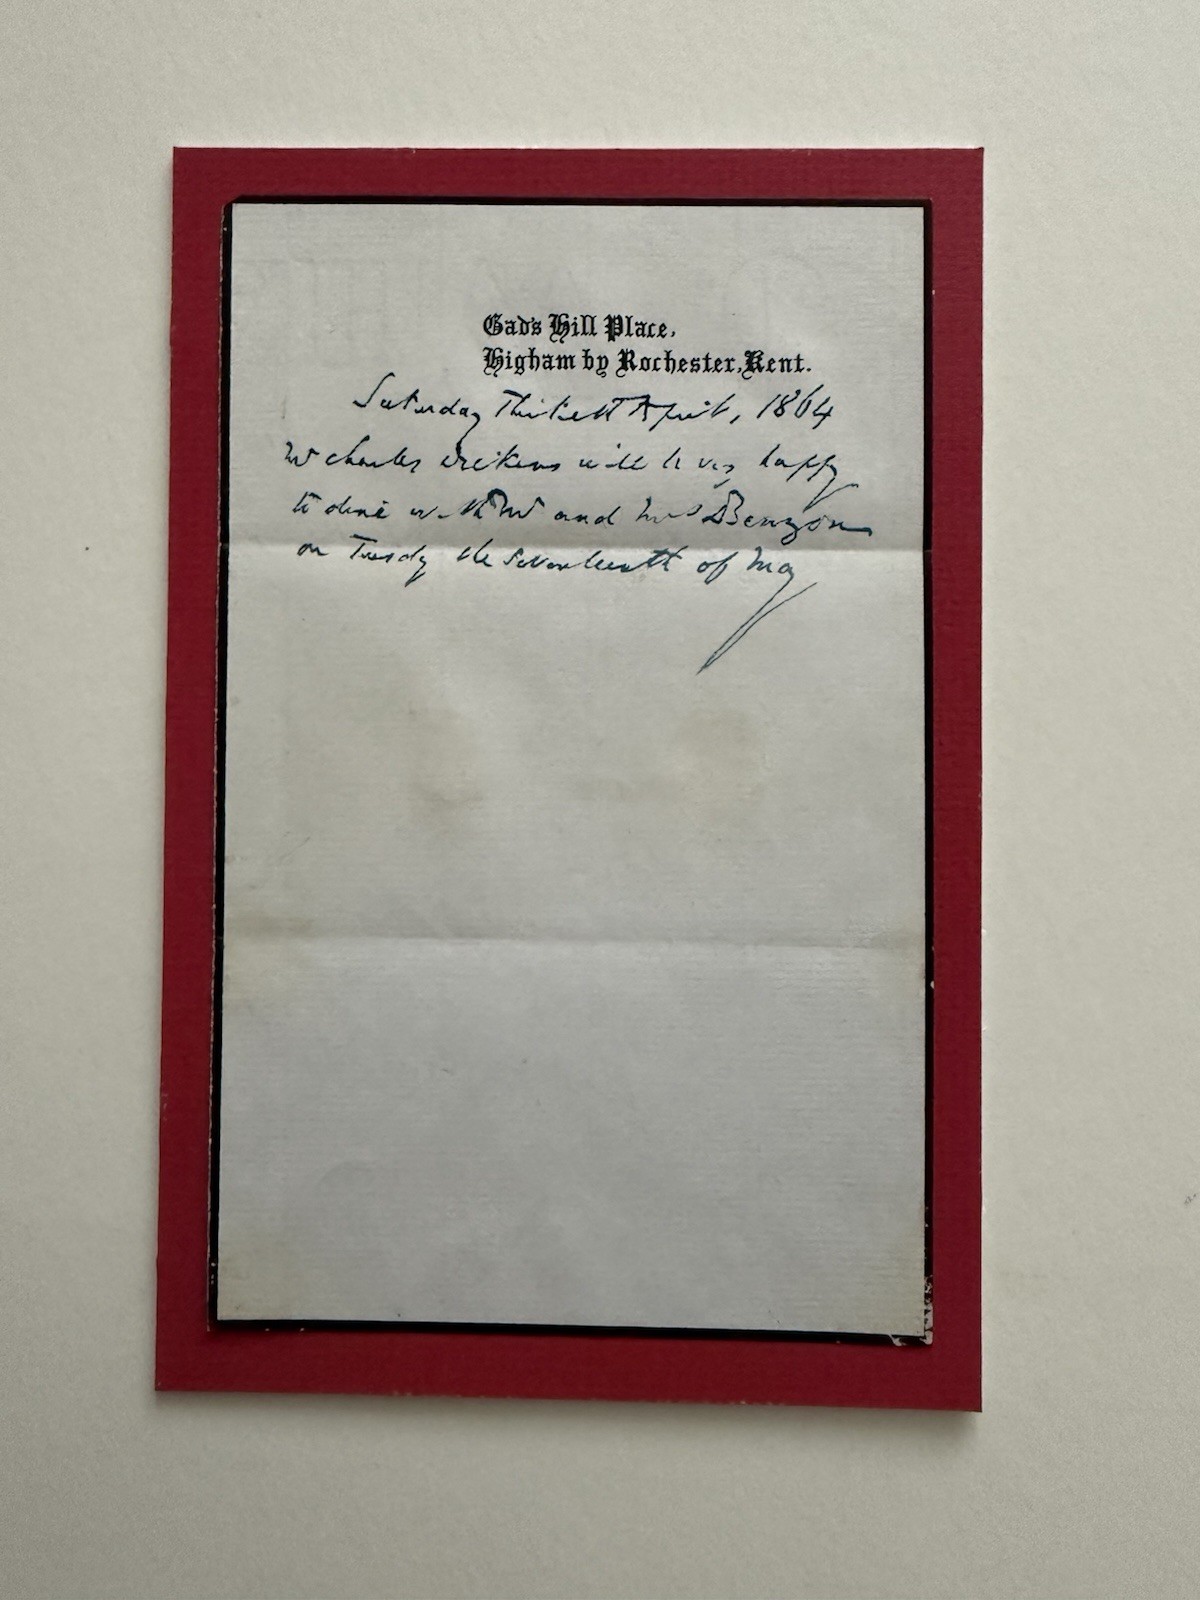 Gad's Hill Place,
Higham by Rochester, Kent.
Saturday Thirtieth April, 1864
Mr Charles Dickens will be very happy
to dine with Mr and Mrs Benzon
on Tuesday the Seventeenth of May